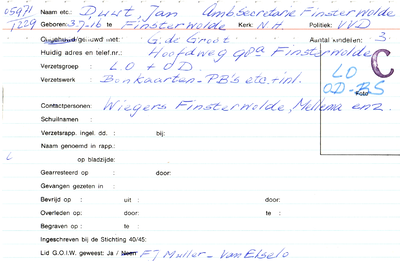 05971 Naam etc.: Duurt, Jan Amb.Secretarie Finsterwolde
T229 Geboren: 3-7-'16 te Finsterwolde Kerk: N.H. Politiek: VVD
Ongehuwd/gehuwd met: G. de Groot Aantal kinderen: 3
Huidig adres en telef.nr.: Hoofdweg 98a Finsterwolde
Verzetsgroep: LO + OD C
Verzetswerk: Bonkaarten - PB's etc. + inl. LO
OD-BS
Foto
Contactpersonen: Wiegers Finsterwolde, Mellema enz.
Schuilnaam :
Verzetsrapp. ingel. dd. : bij:
Naam genoemd in rapp.:
op bladzijde:
Gearresteerd op : door:
Gevangen gezeten in :
Bevrijd op : uit : door:
Overleden op: door: te :
Begraven op : te :
Ingeschreven bij de Stichting 40/45:
Lid G.O.I.W. geweest: Ja / Neen F7 Muller - van Elselo